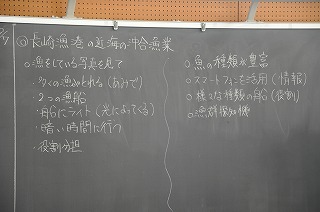 ◎長崎漁港の近海の沖合漁業
○漁をしている写真を見て
・多くの漁がとれる(あみで)
・2つの漁船
・船にライト(光によってくる)
・暗い時間に行う
・役割分担
○魚の種類が豊富
○スマートフォンを活用(情報)
○様々な種類の船(役割)
○漁群探知機